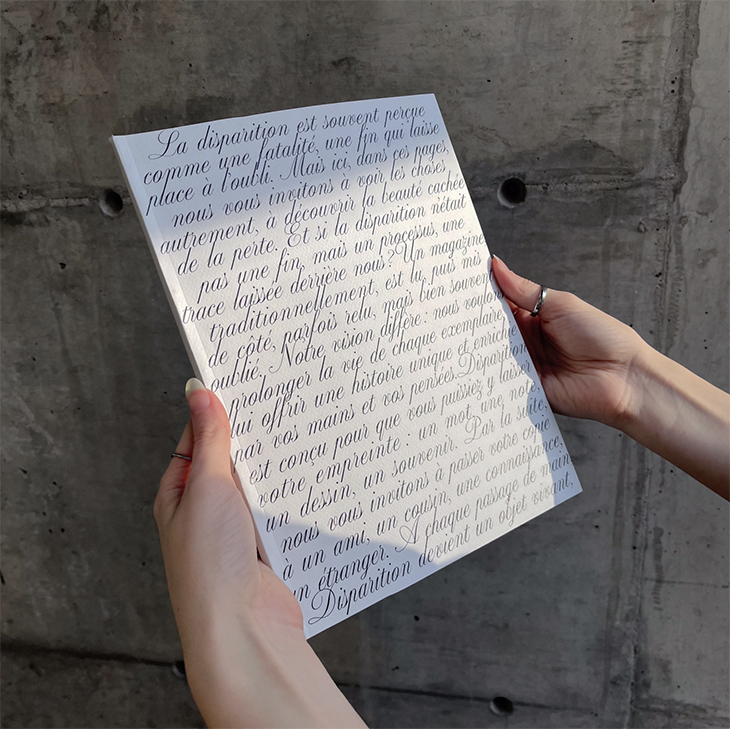 La disparition est souvent perçue
comme une fatalité, une fin qui laisse
place à l'oubli. Mais ici, dans ces pages,
nous vous invitons à voir les choses
autrement, à découvrir la beauté cachée
de la perte. Et si la disparition n'était
pas une fin, mais un processus, une
trace laissée derrière nous? Un magazine
traditionnellement, est lu, puis mis
de côté, parfois relu, mais bien souvent
oublié. Notre vision diffère : nous voulons
prolonger la vie de chaque exemplaire,
lui offrir une histoire unique et enrichie
par vos mains et vos pensées.Disparition
est conçu pour que vous puissiez y laisser
votre empreinte : un mot, une note,
un dessin, un souvenir. Par la suite,
nous vous invitons à passer votre copie
à un ami, un cousin, une connaissance,
un étranger. A chaque passage de main
Disparition devient un objet vivant,